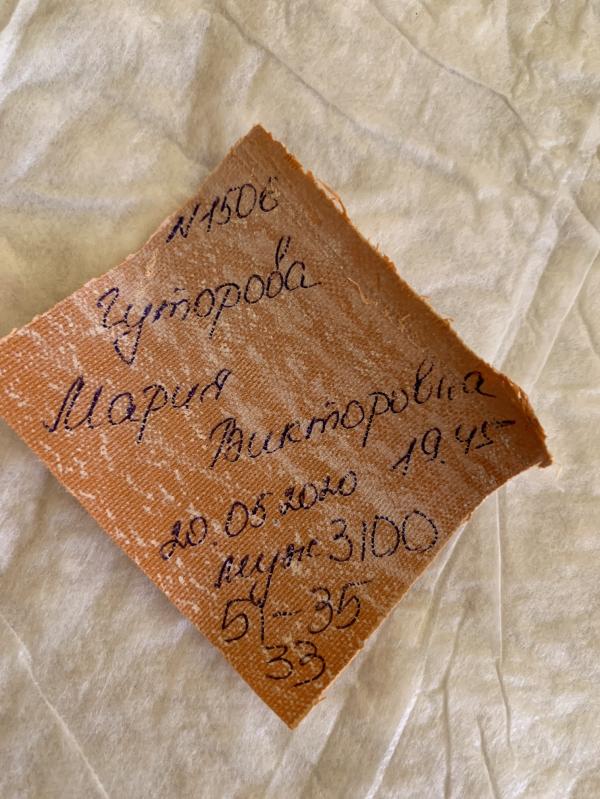 N1506
Гуторова
Мария
Викторовна
20.05.2020 19.45
муж 3100
51-35
33